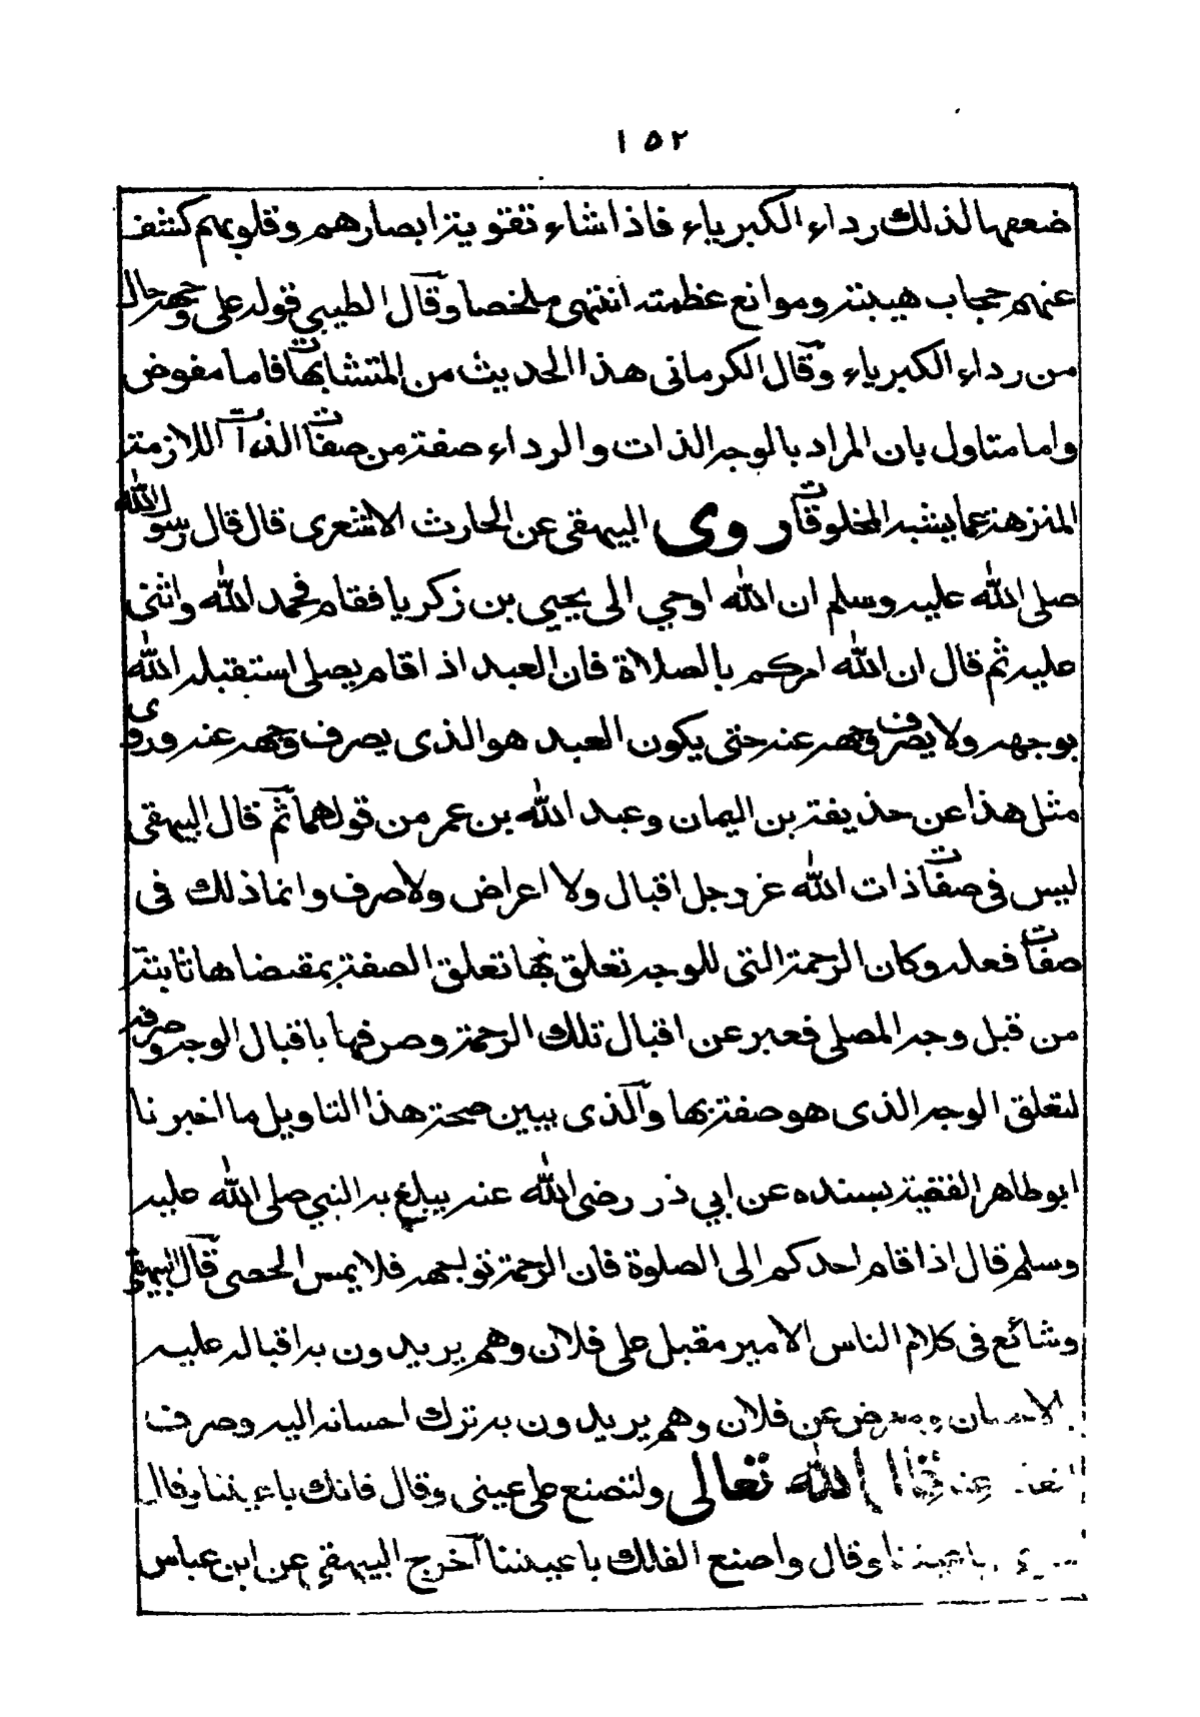 ١٥٢
ضعفها لذلك رداء الكبرياء فاذا شاء تقوية ابصارهم وقلوبهم كشف
عنهم حجاب هيبته وموانع عظمته انتهى ملخصا وقال الطيبي قوله على وجهه حال
من رداء الكبرياء وقال الكرمانى هذا الحديث من المتشابهات فاما مفوض
واما متاول بان المراد بالوجه الذات والرداء صفة من صفات الذات اللازمة
المنزهة عما يشبه المخلوقات روى البيهقى عن الحارث الاشعرى قال قال رسول الله
صلى الله عليه وسلم ان الله اوحي الى يحيى بن زكريا فقام فحمد الله واثنى
عليه ثم قال ان الله امركم بالصلاة فان العبد اذا قام يصلى استقبله الله
بوجهه ولا يصرف وجهه عنه حتى يكون العبد هو الذى يصرف وجهه عنه وروى
مثل هذا عن حذيفة بن اليمان وعبد الله بن عمر من قولهما ثم قال البيهقى
ليس فى صفات ذات الله عز وجل اقبال ولا اعراض ولا صرف وانما ذلك فى
صفات فعله وكان الرحمة التى للوجه تعلق بها تعلق الصفة بمقتضاها ثابتة
من قبل وجه المصلى فعبر عن اقبال تلك الرحمة وصرفها باقبال الوجه وصرفه
لتعلق الوجه الذى هو صفة بها والذى يبين صحة هذا التاويل ما اخبرنا
ابو طاهر الفقيه بسنده عن ابي ذر رضى الله عنه يبلغ به النبي صلى الله عليه
وسلم قال اذا قام احدكم الى الصلوة فان الرحمة تواجهه فلا يمس الحصى قال البيهقى
وشائع فى كلام الناس الامير مقبل على فلان وهم يريدون به اقباله عليه
بالاحسان ومعرض عن فلان وهم يريدون به ترك احسانه اليه وصرف
عنه قال الله تعالى ولتصنع على عينى وقال فانك باعيننا وقال
باعيننا وقال واصنع الفلك باعيننا آخرج البيهقى عن ابن عباس